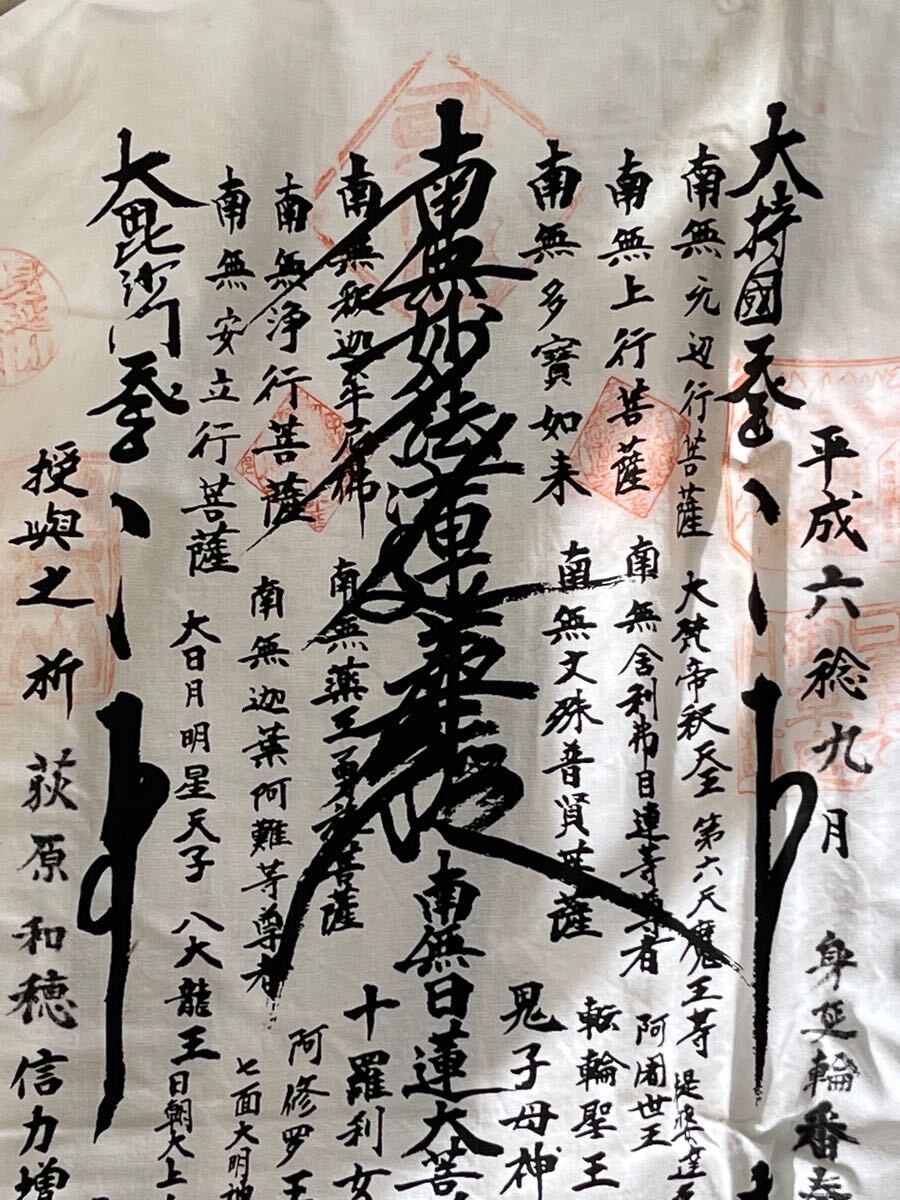 平成六稔九月 身延輪番奉
大持國天王
南無无辺行菩薩
大梵帝釈天王 第六天魔王等 提婆達
南無上行菩薩
南無舎利弗目連等尊者 阿闍世王
転輪聖王
南無多寳如来
南無文殊普賢菩薩
鬼子母神
南無妙法蓮華経
南無日蓮大菩
南無釈迦牟尼佛
南無薬王勇施菩薩
十羅刹女
南無浄行菩薩
南無迦葉阿難等尊者
阿修罗王
七面大明神
南無安立行菩薩
大日月明星天子 八大龍王 日朝大上
大毘沙門天王
授與之 祈 荻原和穂信力増